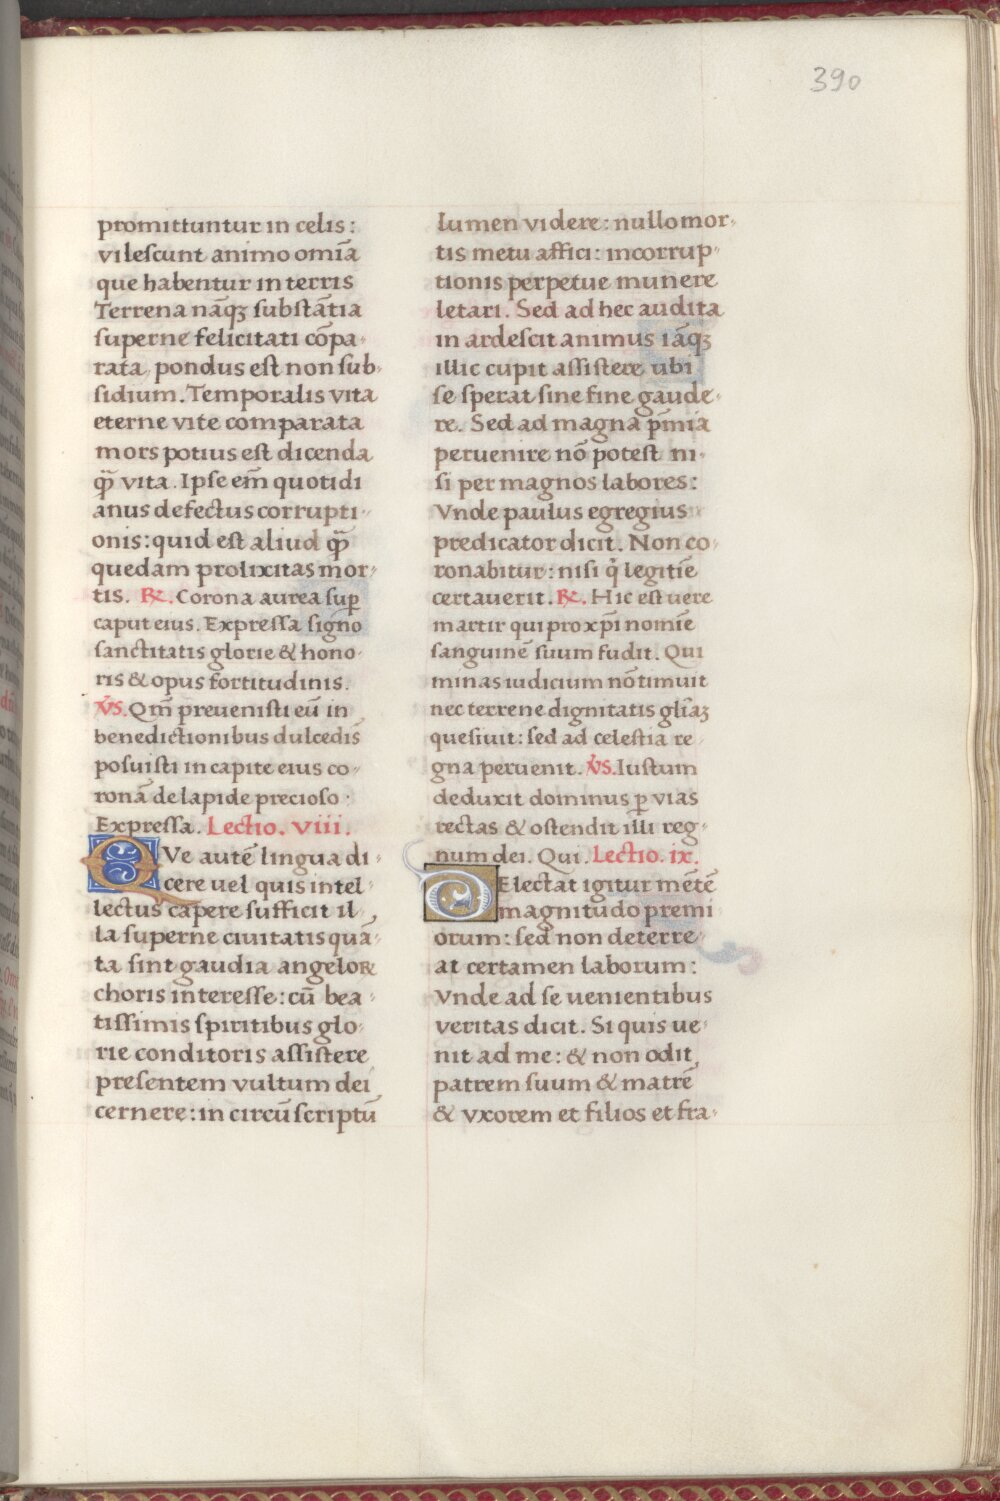 390
promittuntur in celis:
vilescunt animo omīa
que habentur in terris
Terrena nāqꝫ substātia
superne felicitati cōpa-
rata, pondus est non sub-
sidium. Temporalis vita
eterne vite comparata
mors potius est dicenda
q̄ vita. Ipse em̄ quotidi
anus defectus corrupti-
onis: quid est aliud q̄
quedam prolixitas mor-
tis. ℟. Corona aurea suꝑ
caput eius. Expressa signo
sanctitatis glorie & hono-
ris & opus fortitudinis.
℣S. Qm̄ prevenisti eū in
benedictionibus dulcedis̄
posuisti in capite eius co-
ronā de lapide precioso:
Expressa. Lectio. viii.
QVe autē lingua di-
cere vel quis intel-
lectus capere sufficit il-
la superne civitatis quā-
ta sint gaudia angeloꝝ
choris interesse: cū bea-
tissimis spiritibus glo-
rie conditoris assistere
presentem vultum dei
cernere: in circūscriptū
lumen videre: nullo mor-
tis metu affici: incorrup-
tionis perpetue munere
letari. Sed ad hec audita
in ardescit animus iāqꝫ
illic cupit assistere ubi
se sperat sine fine gaude-
re. Sed ad magna p̄mia
pervenire nō potest ni-
si per magnos labores:
Vnde paulus egregius
predicator dicit. Non co-
ronabitur: nisi q̇ legitīe
certaverit. ℟. Hic est vere
martir qui pro xp̄i nomīe
sanguinē suum fudit. Qui
minas iudicium nō timuit
nec terrene dignitatis glīaꝫ
quesivit: sed ad celestia re-
gna pervenit. ℣S. Iustum
deduxit dominus ꝑ vias
rectas & ostendit illi reg-
num dei. Qui. Lectio. ix.
DElectat igitur mētē
magnitudo premi
orum: sed non deterre-
at certamen laborum:
Vnde ad se uenientibus
veritas dicit. Si quis ue-
nit ad me: & non odit
patrem suum & matrē
& vxorem et filios et fra-